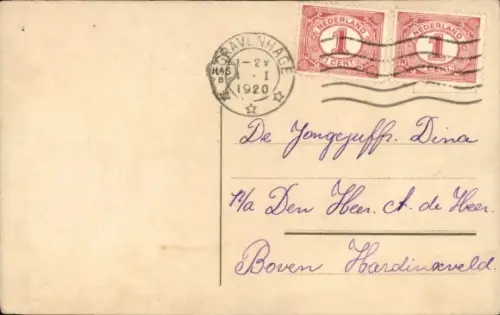 NEDERLAND
1
CENT
NEDERLAND
1
CENT
GRAVENHAGE
1-2V
1.I
1920
De Jongejuffr. Dina
p/a Den Heer. A. de Heer.
Boven Hardinxveld.